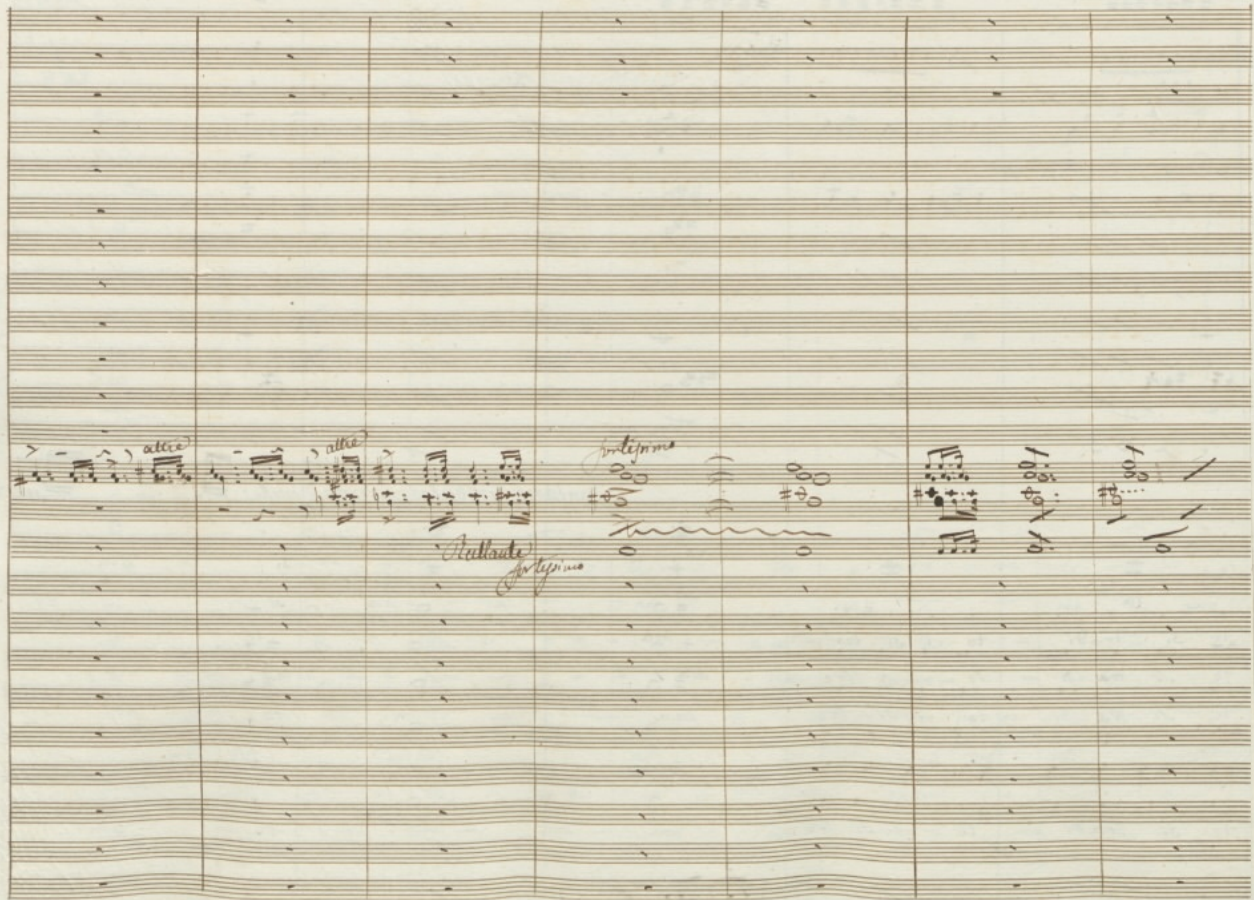 altre altre fortissimo
Rullante
fortissimo